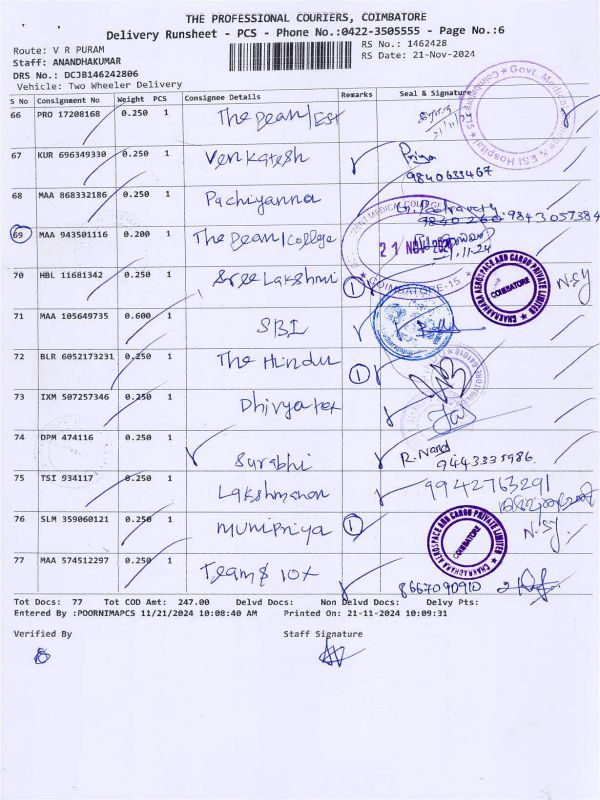 THE PROFESSIONAL COURIERS, COIMBATORE
Delivery Runsheet - PCS - Phone No.:0422-3505555 - Page No.:6
Route: V R PURAM
RS No.: 1462428
Staff: ANANDHAKUMAR
RS Date: 21-Nov-2024
DRS No.: DCJB146242806
Vehicle: Two Wheeler Delivery
S No Consignment No Weight PCS Consignee Details Remarks Seal & Signature
66 PRO 17208168 0.250 1 The Dean/Est
67 KUR 696349330 0.250 1 Venkatesh Priya
9840633467
68 MAA 868332186 0.250 1 Pachiyanna
69 MAA 943501116 0.200 1 The Dean/College 21 NOV 2024
COIMBATORE-15
70 HBL 11681342 0.250 1 Sree Lakshmi 1 CHARADHARA AEROSPACE AND CARGO PRIVATE LIMITED COIMBATORE
71 MAA 105649735 0.600 1 SBI
72 BLR 6052173231 0.250 1 The Hindu 1
73 IXM 507257346 0.250 1 Dhivya tex
74 DPM 474116 0.250 1 Surabhi R. Nand
9443335986
75 TSI 934117 0.250 1 Lakshmanan 9942763291
76 SLM 359060121 0.250 1 Munipriya 1 CHARADHARA AEROSPACE AND CARGO PRIVATE LIMITED COIMBATORE
77 MAA 574512297 0.250 1 Team & 10x 8667090910
Tot Docs: 77 Tot COD Amt: 247.00 Delvd Docs: Non Delvd Docs: Delvy Pts:
Entered By :POORNIMAPCS 11/21/2024 10:08:40 AM Printed On: 21-11-2024 10:09:31
Verified By Staff Signature